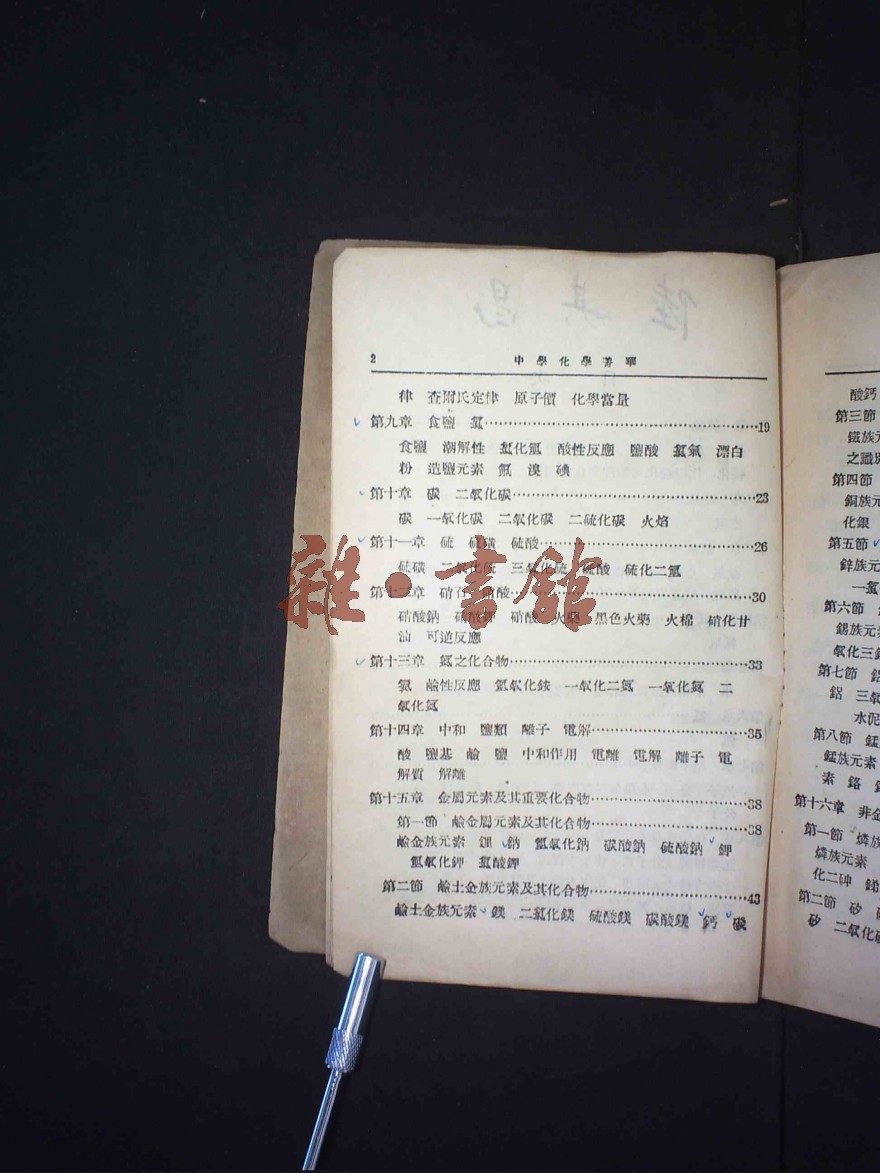 2
中學化學菁華
律 查爾氏定律 原子價 化學當量
第九章 食鹽 氯……19
食鹽 潮解性 氯化氫 酸性反應 鹽酸 氯氣 漂白
粉 造鹽元素 氟 溴 碘
第十章 碳 二氧化碳……23
碳 一氧化碳 二氧化碳 二硫化碳 火焰
第十一章 硫 硫磺 硫酸……26
硫磺 二氧化硫 三氧化硫 硫酸 硫化二氫
第十二章 硝石 硝酸……30
硝酸鈉 硝酸鉀 硝酸 火藥 黑色火藥 火棉 硝化甘
油 可逆反應
第十三章 氮之化合物……33
氨 鹼性反應 氫氧化銨 一氧化二氮 一氧化氮 二
氧化氮
第十四章 中和 鹽類 離子 電解……35
酸 鹽基 鹼 鹽 中和作用 電離 電解 離子 電
解質 解離
第十五章 金屬元素及其重要化合物……38
第一節 鹼金屬元素及其化合物……38
鹼金族元素 鈉 氫氧化鈉 碳酸鈉 硫酸鈉 鉀
氫氧化鉀 氯酸鉀
第二節 鹼土金族元素及其化合物……43
鹼土金族元素 鎂 二氯化鎂 硫酸鎂 碳酸鎂 鈣 碳
酸鈣
第三節
鐵族元
之識別
第四節
銅族元
化銀
第五節
鋅族元
一氯
第六節
錫族元
氧化三
第七節 鋁
鋁 三氧
水泥
第八節 錳
錳族元素
素 鉻
第十六章 非金
第一節 燐族
燐族元素
化二砷
第二節 矽
矽 二氧化
雜·書館